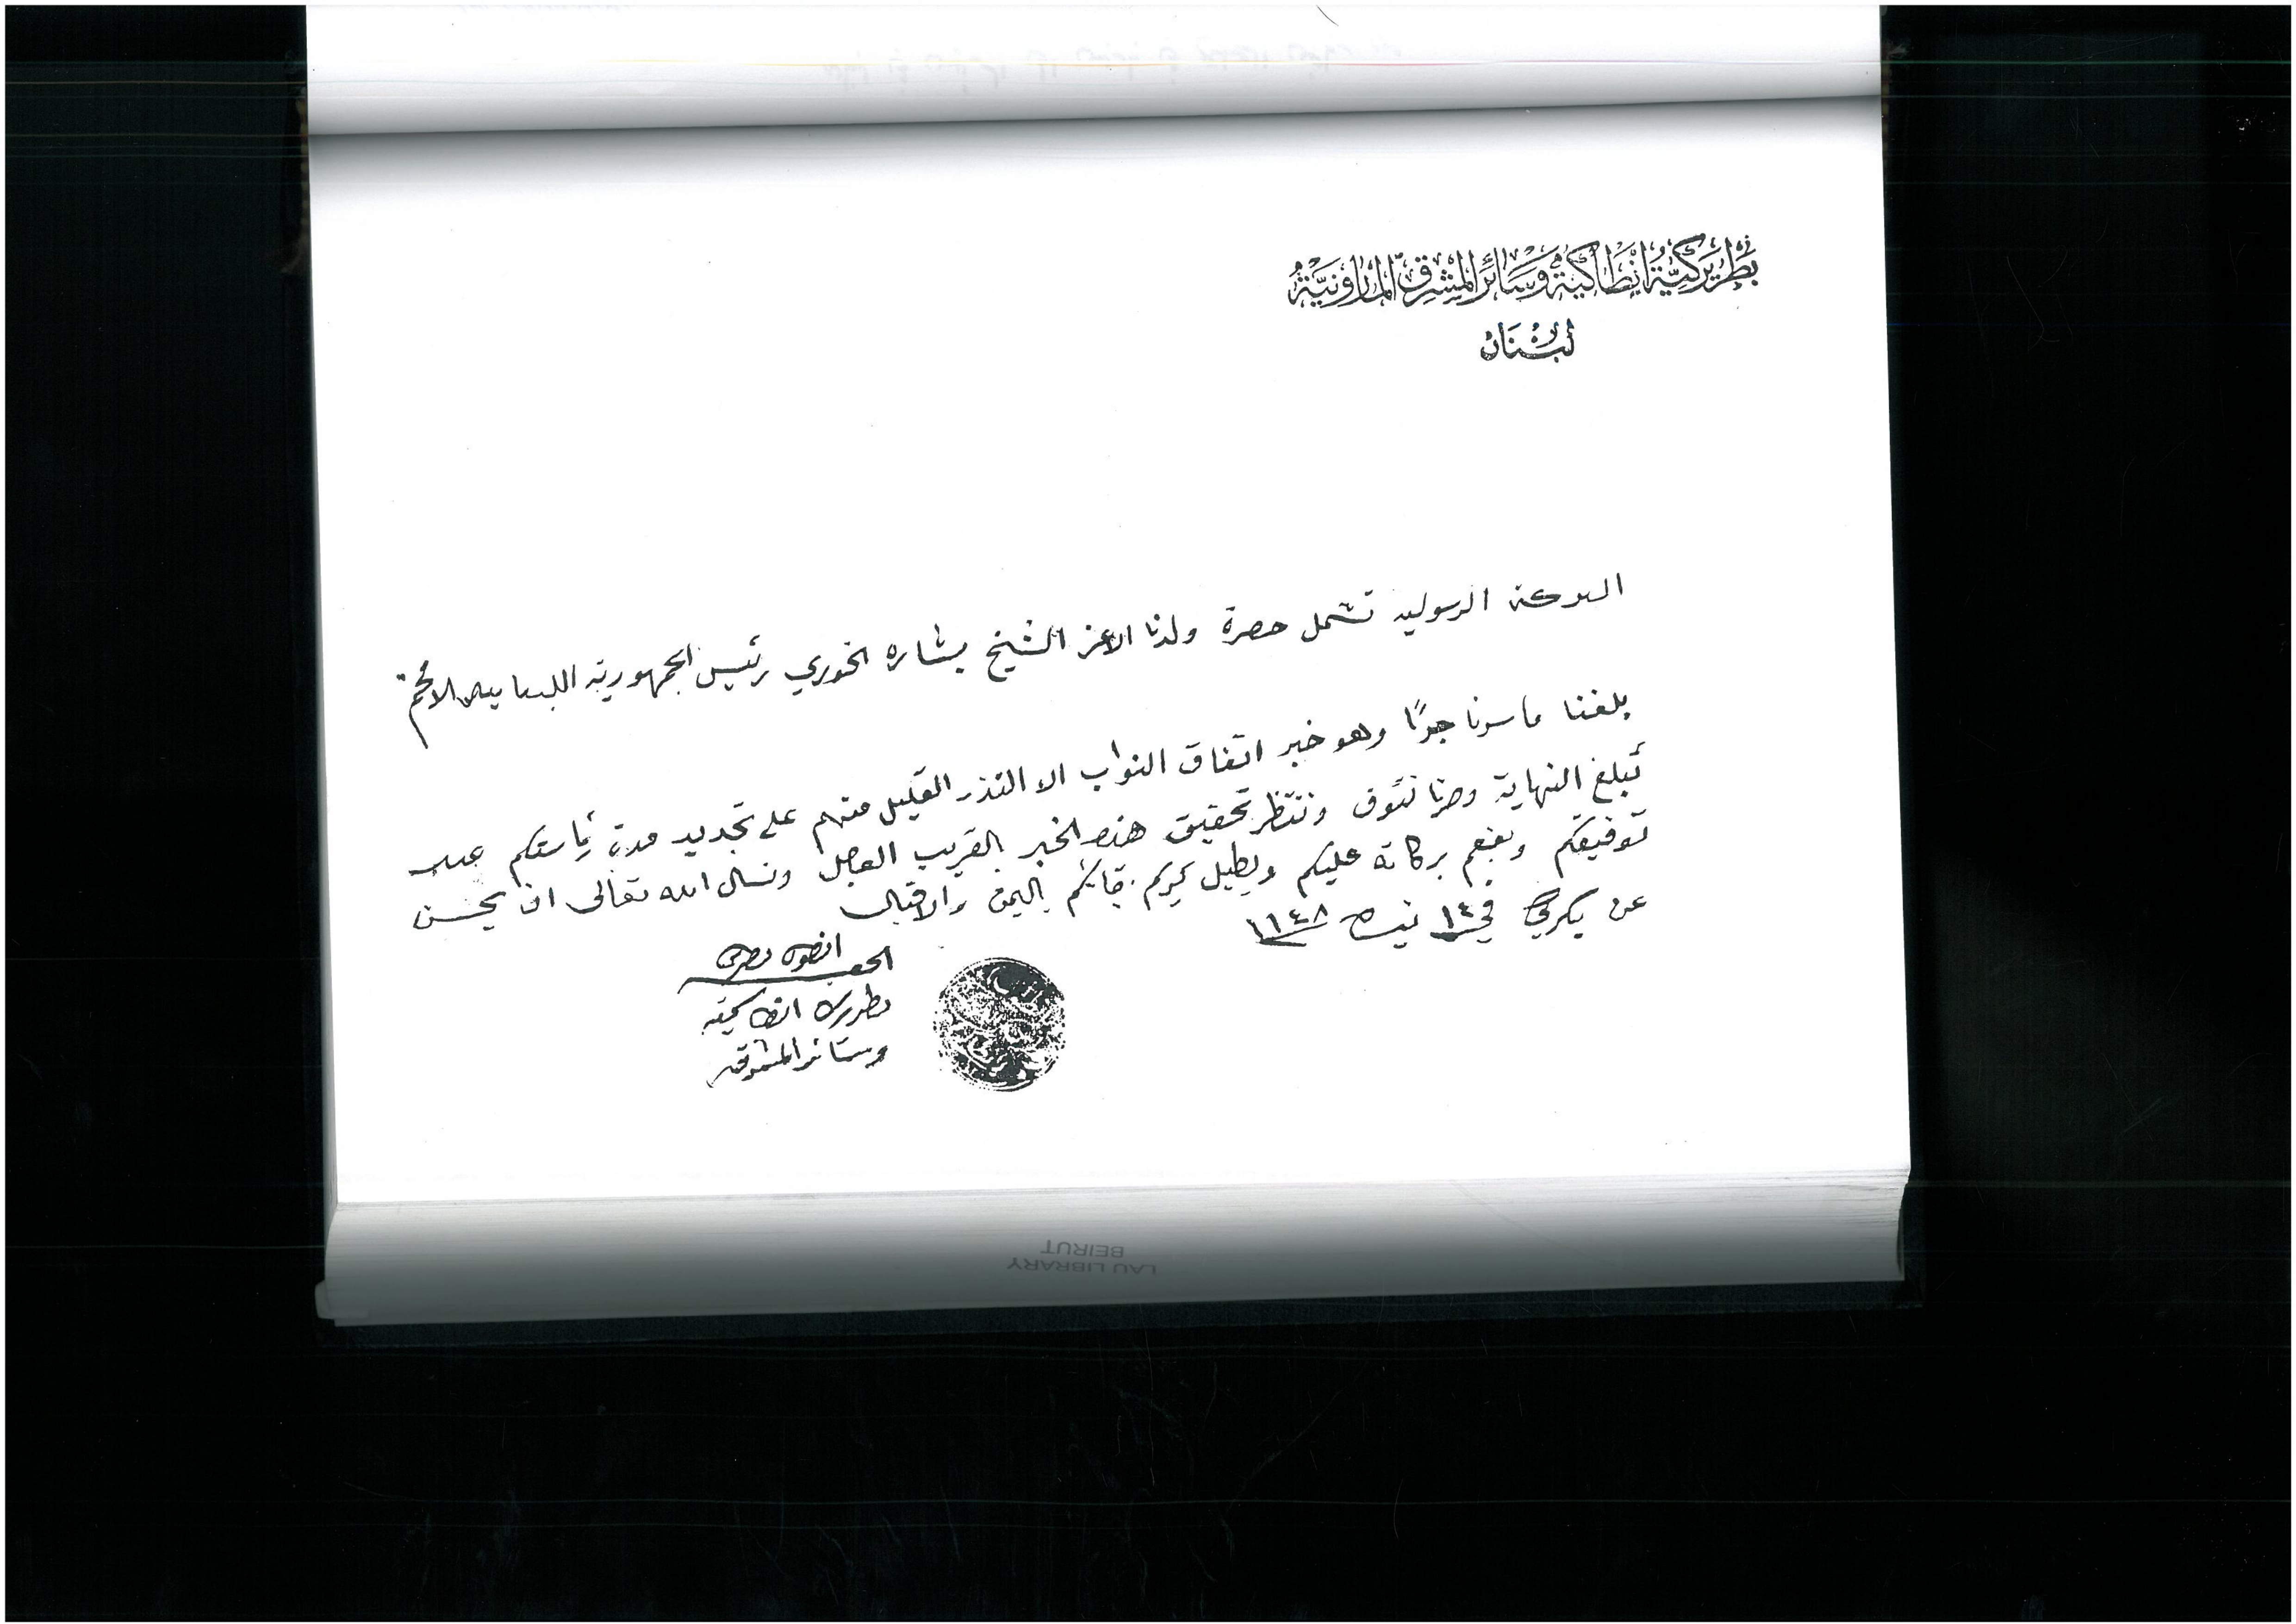 بطريركية انطاكية وسائر المشرق المارونية
لبنان
البركة الرسولية تشمل حضرة ولدنا الاعز الشيخ بشاره الخوري رئيس الجمهورية اللبنانية الافخم
بلغنا ما سرنا جدًا وهو خبر اتفاق النواب الا النذر القليل منهم على تجديد مدة رئاستكم
تبلغ النهاية وصرنا نتوق وننتظر تحقيق هذا الخبر بالقريب العاجل ونسال الله تعالى ان يحسن
توفيقكم وبركاته عليكم ويطيل كريم بقائكم باليمن والاقبال
عن بكركي في ١٤ نيسان ١٩٤٨
الحقير
انطون
بطريرك انطاكية
وسائر المشرق
LAU LIBRARY
BEIRUT